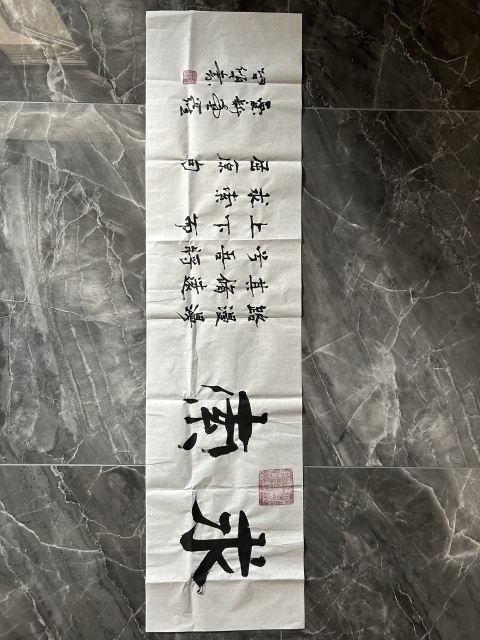 求索
路漫漫
其修遠
兮吾將
上下而
求索
屈原句